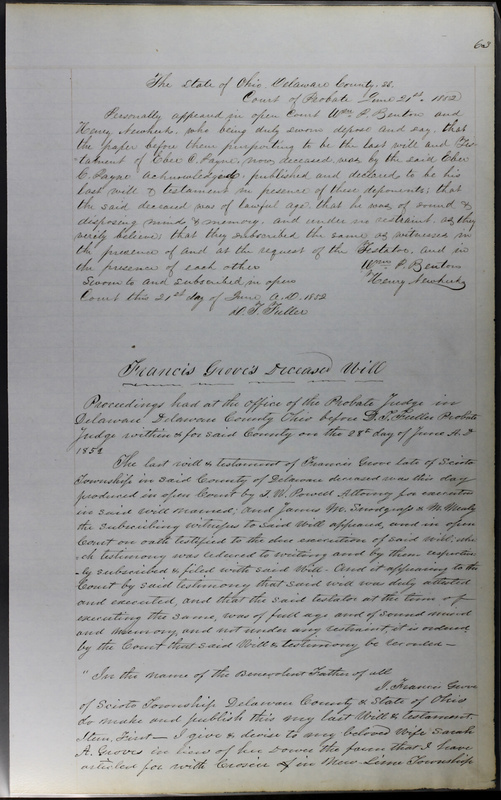 63
The State of Ohio Delaware County. ss.
Court of Probate June 21st. 1852
Personally appeared in open Court Wm P. Benton and
Henry Newkirk, who being duly sworn depose and say, that
the paper before them purporting to be the last will and Tes-
tament of Eber C. Payne, now, deceased was by the said Eber
C. Payne acknowledged, published and declared to be his
last will & testament in presence of these deponents; that
the said deceased was of lawful age that he was of sound &
disposing mind & memory, and under no restraint as they
verily believe; that they subscribed the same as witnesses in
the presence of and at the request of the Testator, and in
the presence of each other
Wm P. Benton
Sworn to and subscribed in open
Henry Newkirk
Court this 21st day of June A.D. 1852
D. T. Fuller
Francis Grove's Deceased Will
Proceedings had at the office of the Probate Judge in
Delaware Delaware County Ohio before D. T. Fuller Probate
Judge within & for said County on the 28th day of June A. D
1852
The last will & testament of Francis Grove late of Scioto
Township in said County of Delaware deceased was this day
produced in open Court by T. W. Powell Attorny for executor
in said will named; and James M. & M.
the subscribing witnesses to said Will appeared, and in open
Court on oath testified to the due execution of said will; whi
ch testimony was reduced to writing and by them respective
-ly subscribed & filed with said Will - And it appearing to the
Court by said testimony that said will was duly attested
and executed, and that the said testator at the time of
executing the same, was of full age and of sound mind
and memory, and not under any restraint, it is ordered
by the Court that said Will & testimony be recorded -
"In the name of the Benevolent Father of all
I. Francis Grove
of Scioto Township Delaware County & State of Ohio
do make and publish this my last Will & testament.
Item, First - I give & devise to my beloved Wife Sarah
A. Groves in lieu of her Dower the farm that I have
articled for with in Township